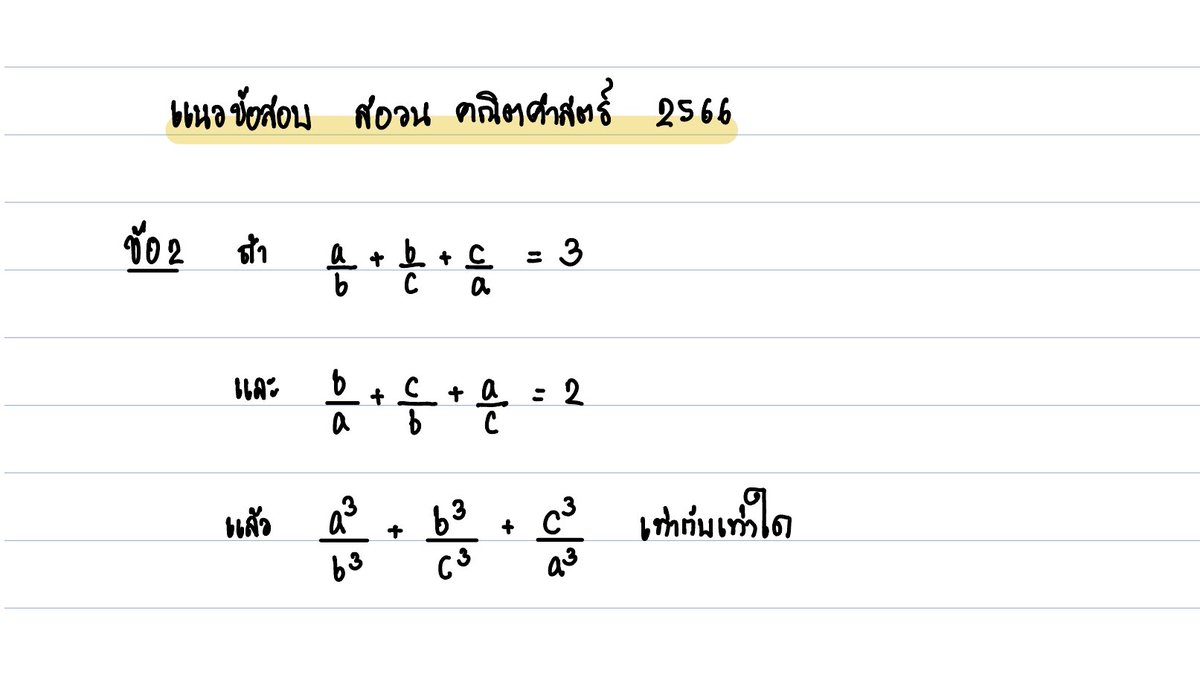 แนวข้อสอบ สอวน คณิตศาสตร์ 2566
ข้อ 2 ถ้า a/b + b/c + c/a = 3
และ b/a + c/b + a/c = 2
แล้ว a³/b³ + b³/c³ + c³/a³ เท่ากับเท่าใด